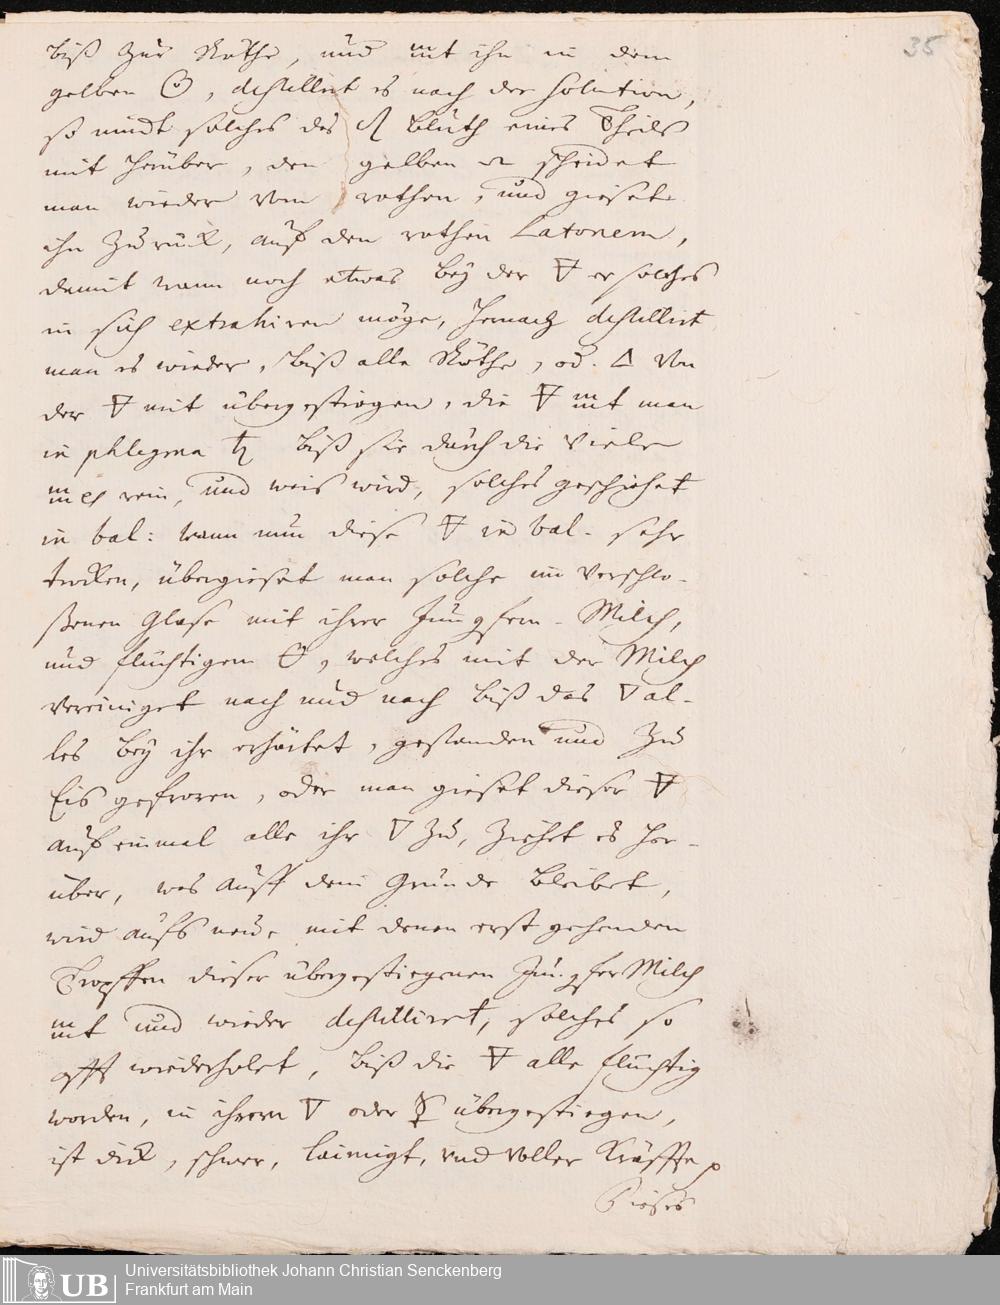 35
biß zur Röthe, und ihn in dem
gelben, destillirt es nach der Solution,
so nimdt solches des Bluth eines Theils
mit herüber, den gelben scheidet
man wieder vom rothen, und gieset
ihn zurück, auf den rothen Latonem,
damit wann noch etwas bey der 🜃 er solches
in sich extrahiren möge, hernach destillirt
man es wieder, biß alle Röthe, od. 🜂 von
der 🜃 mit übergestiegen, die 🜃 man
in phlegma biß sie durch die viele
rein, und weis wird, solches geschiehet
in bal: wann nun diese 🜃 in bal. sehr
trucken, übergieset man solche im verschlo-
ßenen Glase mit ihrer Jungfern-Milch,
und fluchtigem, welches mit der Milch
vereiniget nach und nach biß das 🜄 al-
les bey ihr erhärtet, gestanden und zu
Eis gefroren, oder man gieset dieser 🜃
auf einmal alle ihr 🜄 zu, ziehet es her-
über, was auff dem Grunde bleibet,
wird aufs neue mit denen erst gehenden
Tropffen dieser übergestiegenen Jungfer Milch
und wieder destilliret, solches so
offt wiederholet, biß die 🜃 alle fluchtig
worden, in ihrem 🜄 oder ☿ übergestiegen,
ist dick, schwer, laimigt, und voller Kräffte
Dieses
UB
Universitätsbibliothek Johann Christian Senckenberg
Frankfurt am Main